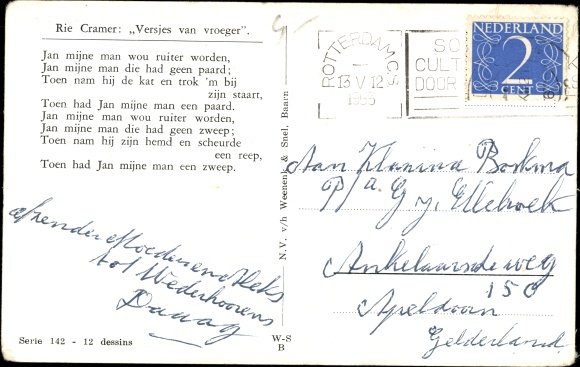 Rie Cramer: „Versjes van vroeger".
Jan mijne man wou ruiter worden,
Jan mijne man die had geen paard;
Toen nam hij de kat en trok 'm bij
zijn staart,
Toen had Jan mijne man een paard.
Jan mijne man wou ruiter worden,
Jan mijne man die had geen zweep;
Toen nam hij zijn hemd en scheurde
een reep,
Toen had Jan mijne man een zweep.
afzender Moeder en
tot Wederhoorens
Daaag
Serie 142 - 12 dessins
N.V. v/h Weenenk & Snel, Baarn
W-S
B
ROTTERDAM C.S
13 V 12
1955
SO
CULT
DOOR
NEDERLAND
2
CENT
Aan Klasina Boskma
P/a G. J. Ellebroek
Ankelaarsdeweg
150
Apeldoorn
Gelderland